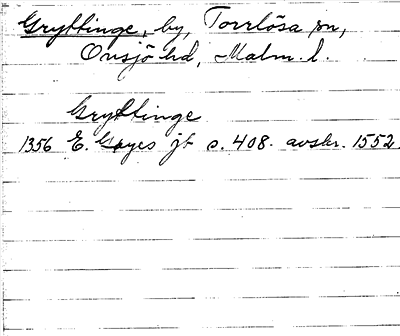 Gryttinge, by, Torrlösa sn,
Onsjö hd, Malm. l.
Gryttinge
1356 E. Gøyes jb s. 408. avskr. 1552.